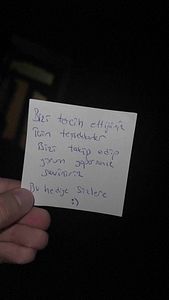 Bizi tercih ettiğiniz
için teşekkürler
Bizi takip edip
yorum yaparsanız
seviniriz
Bu hediye sizlere
:)